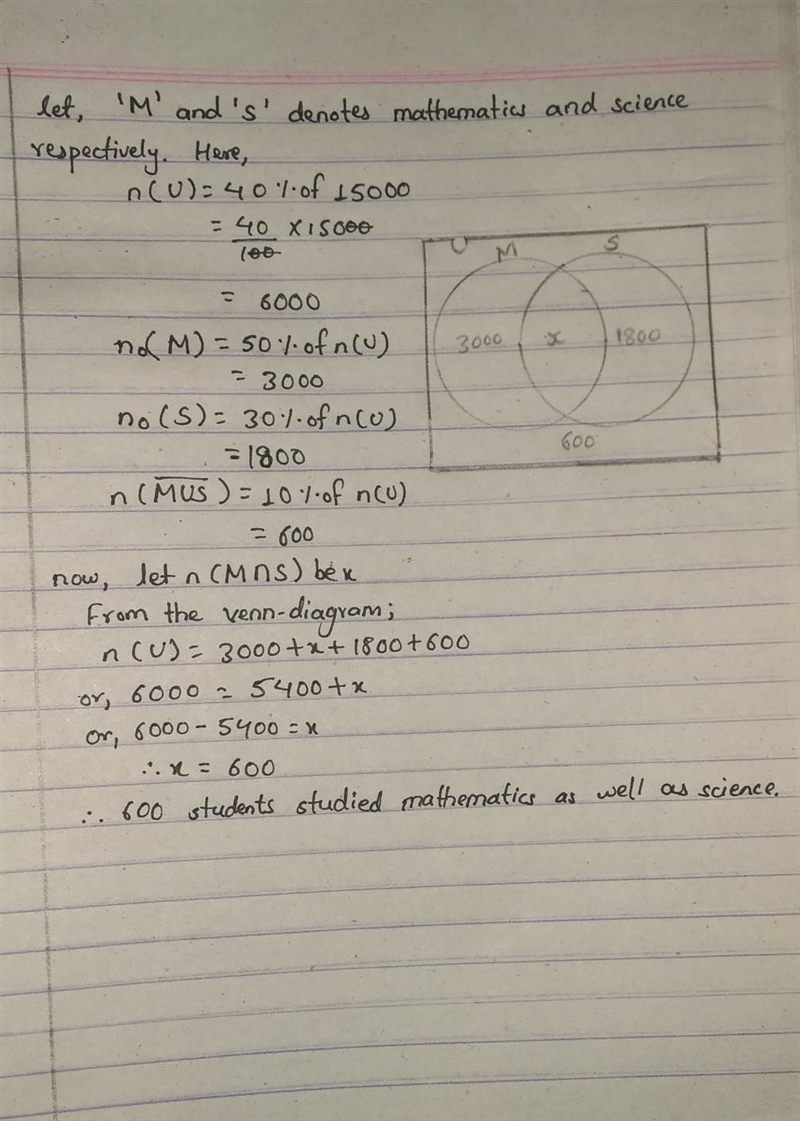 let, 'M' and 's' denotes mathematics and science
respectively. Here,
n(U) = 40% of 15000
= 40/100 × 15000
= 6000
no(M) = 50% of n(U)
= 3000
no(S) = 30% of n(U)
= 1800
n(M̅U̅S̅) = 10% of n(U)
= 600
U M S
3000 x 1800
600
now, let n(M∩S) be x
From the venn-diagram;
n(U) = 3000 + x + 1800 + 600
or, 6000 = 5400 + x
or, 6000 - 5400 = x
∴ x = 600
∴ 600 students studied mathematics as well as science.